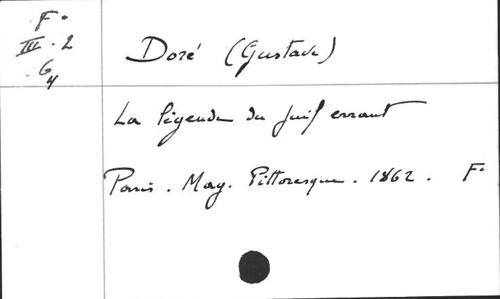 F°
III. 2
64
Doré (Gustave)
La légende du juif errant
Paris. Mag. Pittoresque. 1862. F°